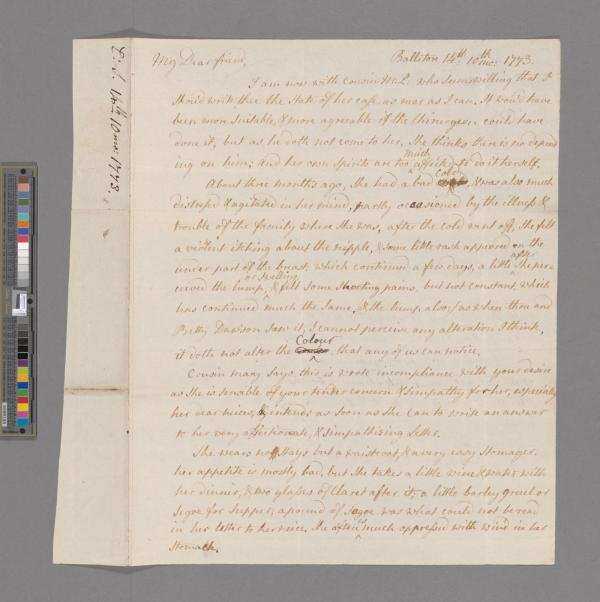 E: L: 14th 10 mo: 1773.
My Dear friend,
Ballston 14th. 10th mo: 1773.
I am now with Cousin M:L: who seems willing that I
should write thee the state of her case as near as I can. It would have
been more suitable, & more agreeable if the Chirurgeon could have
done it, but as he doth not come to her, she thinks there is no depend
ing on him; and her own Spirits are too much affected to do it herself.
About three months ago, she had a bad Cold, & was also much
distressed & agitated in her mind, partly occasioned by the illness &
trouble of the family where she was, after the cold went off, she felt
a violent itching about the nipple, & some little rash appeared on the
under part of the breast which continued a few days, a little after she per=
ceived the lump, or swelling & felt some shooting pains, but not constant, which
has continued much the same, & the lump also, as when thou and
Betty Dawson saw it, I cannot perceive any alteration I think,
it doth not alter the Colour that any of us can notice.
Cousin mary says this is wrote in compliance with your desire
as she is sensible of your tender concern & simpathy for her, especially
her dear nieces, & intends as soon as she can to write an answer
to her very affectionate, & simpathizing Letter.
She wears no stays but a waistcoat, & a very easy Stomager.
her appetite is mostly bad, but she takes a little wine & water with
her dinner, & two glasses of Claret after it, a little barley gruel or
Segoe for supper; a pound of Segoe was what could not be read
in her letter to her niece. She is often much oppressed with wind in her
Stomach.